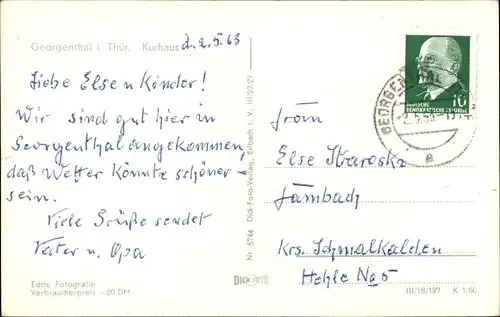 Georgenthal i. Thür. Kurhaus d. 2.5.63
Liebe Else u Kinder!
Wir sind gut hier in
Georgenthal angekommen,
daß Wetter könnte schöner
sein.
Viele Grüße sendet
Vater u. Opa
Echte Fotografie
Verbraucherpreis -.20 DM
Nr. 5744 Dick-Foto-Verlag, Erlbach i. V. III/23/27
DICK
10
DEUTSCHE
DEMOKRATISCHE REPUBLIK
GEORGENTHAL
a
Else
Fambach
Krs. Schmalkalden
Hohle No 5
III/18/197 K 1/60